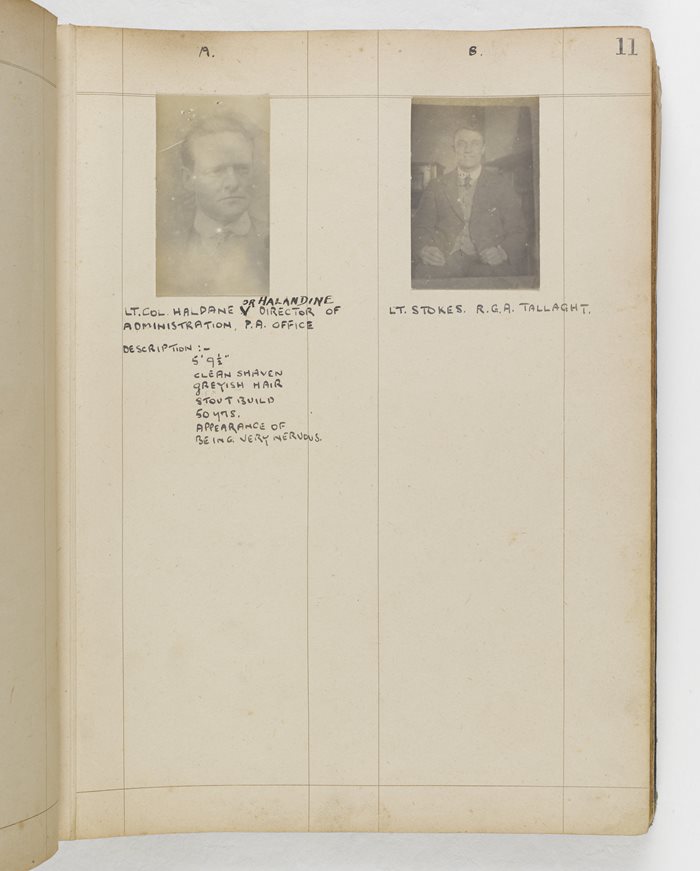 11
A.
B.
OR HALANDINE
LT. COL. HALDANE V DIRECTOR OF
ADMINISTRATION, P.A. OFFICE
DESCRIPTION :-
5' 9½"
CLEAN SHAVEN
GREYISH HAIR
STOUT BUILD
50 YRS.
APPEARANCE OF
BEING VERY NERVOUS.
LT. STOKES. R.G.A. TALLAGHT.